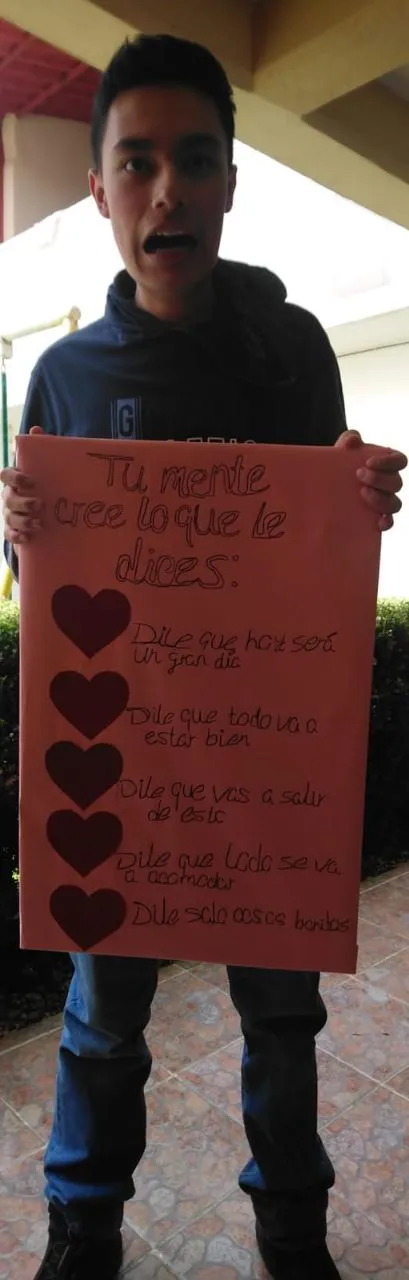 G
Tu mente
cree lo que le
dices:
Dile que hoy será
un gran día
Dile que todo va a
estar bien
Dile que vas a salir
de esto
Dile que todo se va
a acomodar
Dile solo cosas bonitas